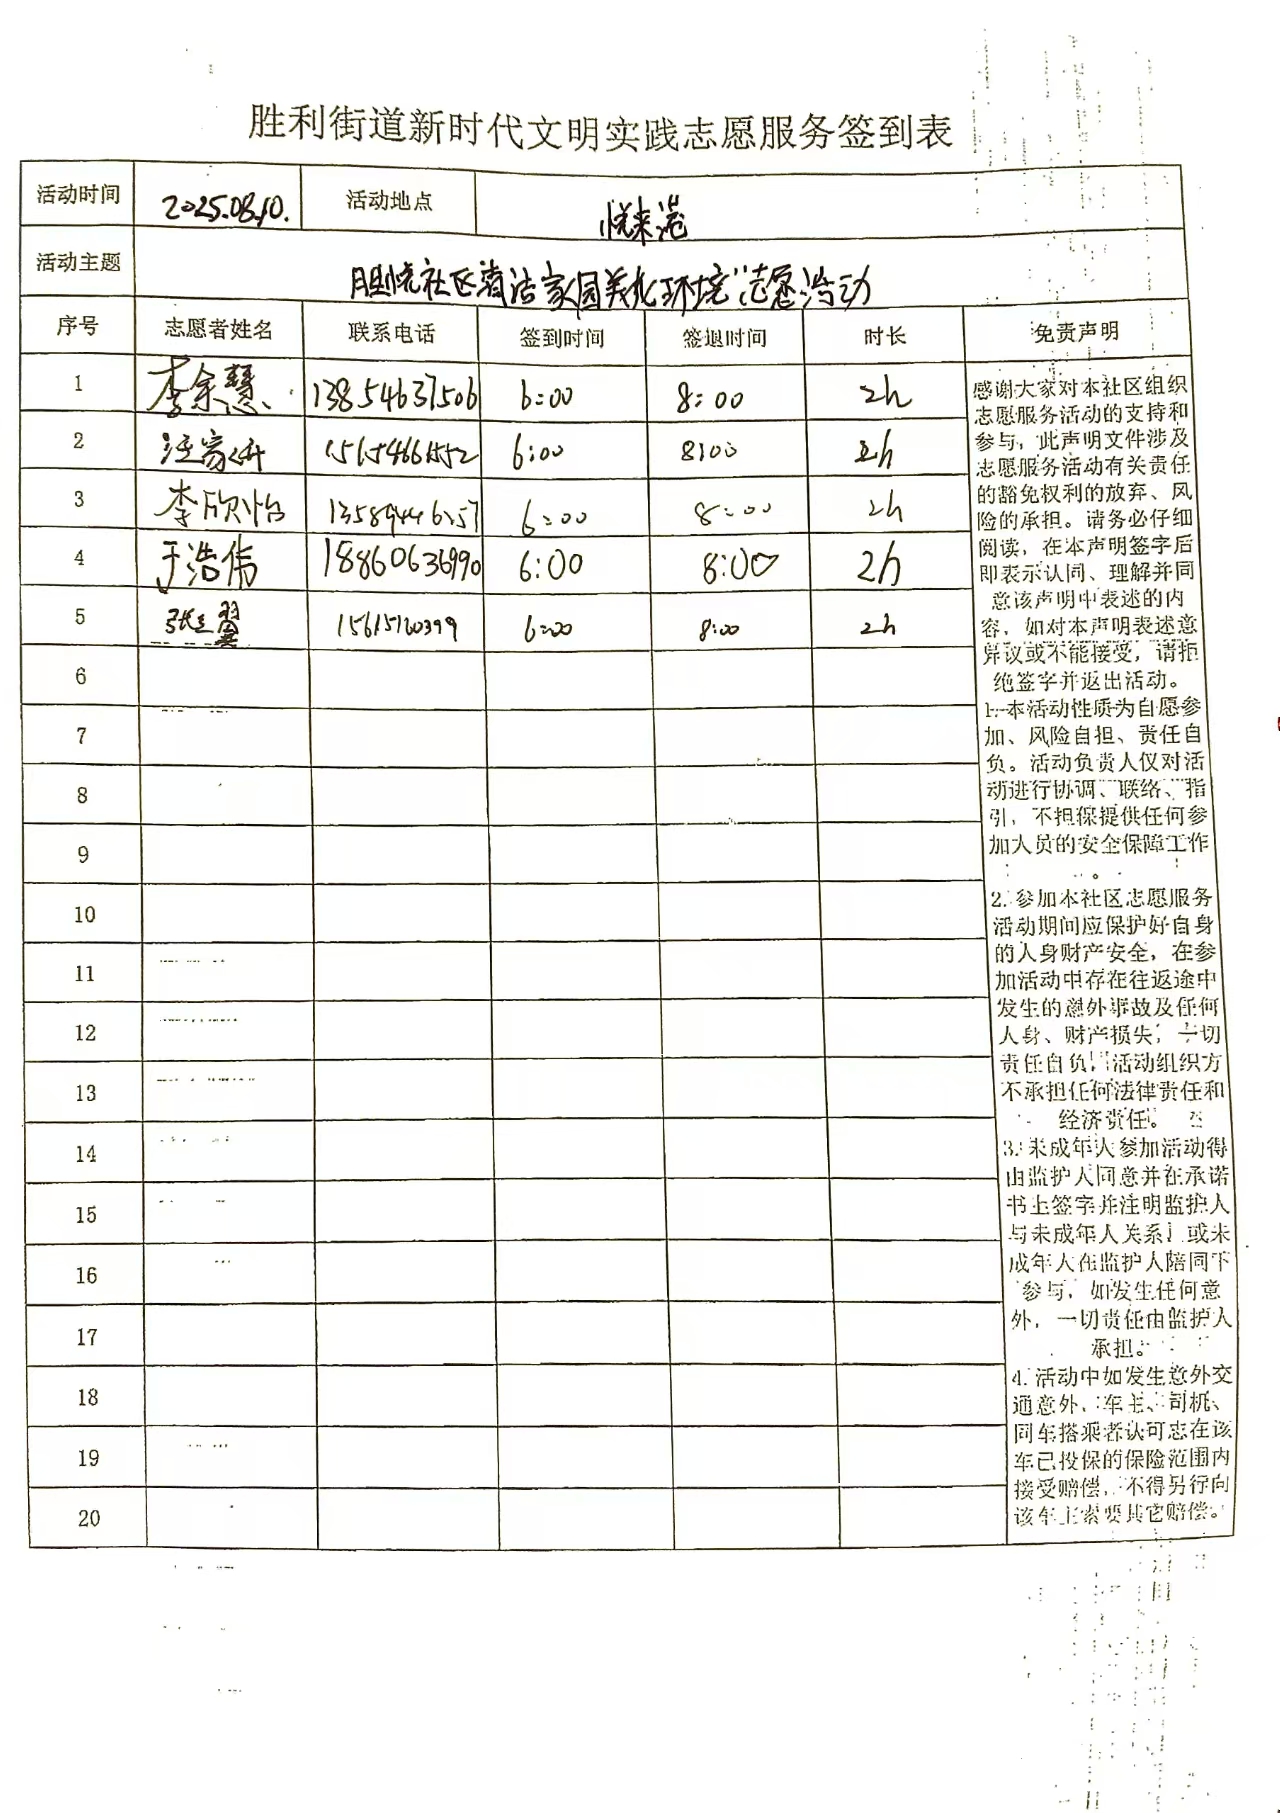 胜利街道新时代文明实践志愿服务签到表
活动时间 2025.08.10. 活动地点 悦来港
活动主题 胜悦社区"清洁家园美化环境"志愿活动
序号 志愿者姓名 联系电话 签到时间 签退时间 时长 免责声明
1 李余慧 13854637506 6:00 8:00 2h
2 汪家 15654661552 6:00 8:00 2h
3 李欣怡 13589446257 6:00 8:00 2h
4 于浩伟 18860636990 6:00 8:00 2h
5 张立翼 15615160399 6:00 8:00 2h
6
7
8
9
10
11
12
13
14
15
16
17
18
19
20
感谢大家对本社区组织
志愿服务活动的支持和
参与,此声明文件涉及
志愿服务活动有关责任
的豁免权利的放弃、风
险的承担。请务必仔细
阅读,在本声明签字后
即表示认同、理解并同
意该声明中表述的内
容,如对本声明表述意
异议或不能接受,请拒
绝签字并返出活动。
1.本活动性质为自愿参
加、风险自担、责任自
负。活动负责人仅对活
动进行协调、联络、指
引,不担保提供任何参
加人员的安全保障工作
。
2.参加本社区志愿服务
活动期间应保护好自身
的人身财产安全,在参
加活动中存在往返途中
发生的意外事故及任何
人身、财产损失,一切
责任自负,活动组织方
不承担任何法律责任和
经济责任。
3.未成年人参加活动得
由监护人同意并在承诺
书上签字并注明监护人
与未成年人关系,或未
成年人在监护人陪同下
参与,如发生任何意
外,一切责任由监护人
承担。
4.活动中如发生意外交
通意外,车主、司机、
同车搭乘者认可志在该
车已投保的保险范围内
接受赔偿,不得另行向
该车主索要其它赔偿。